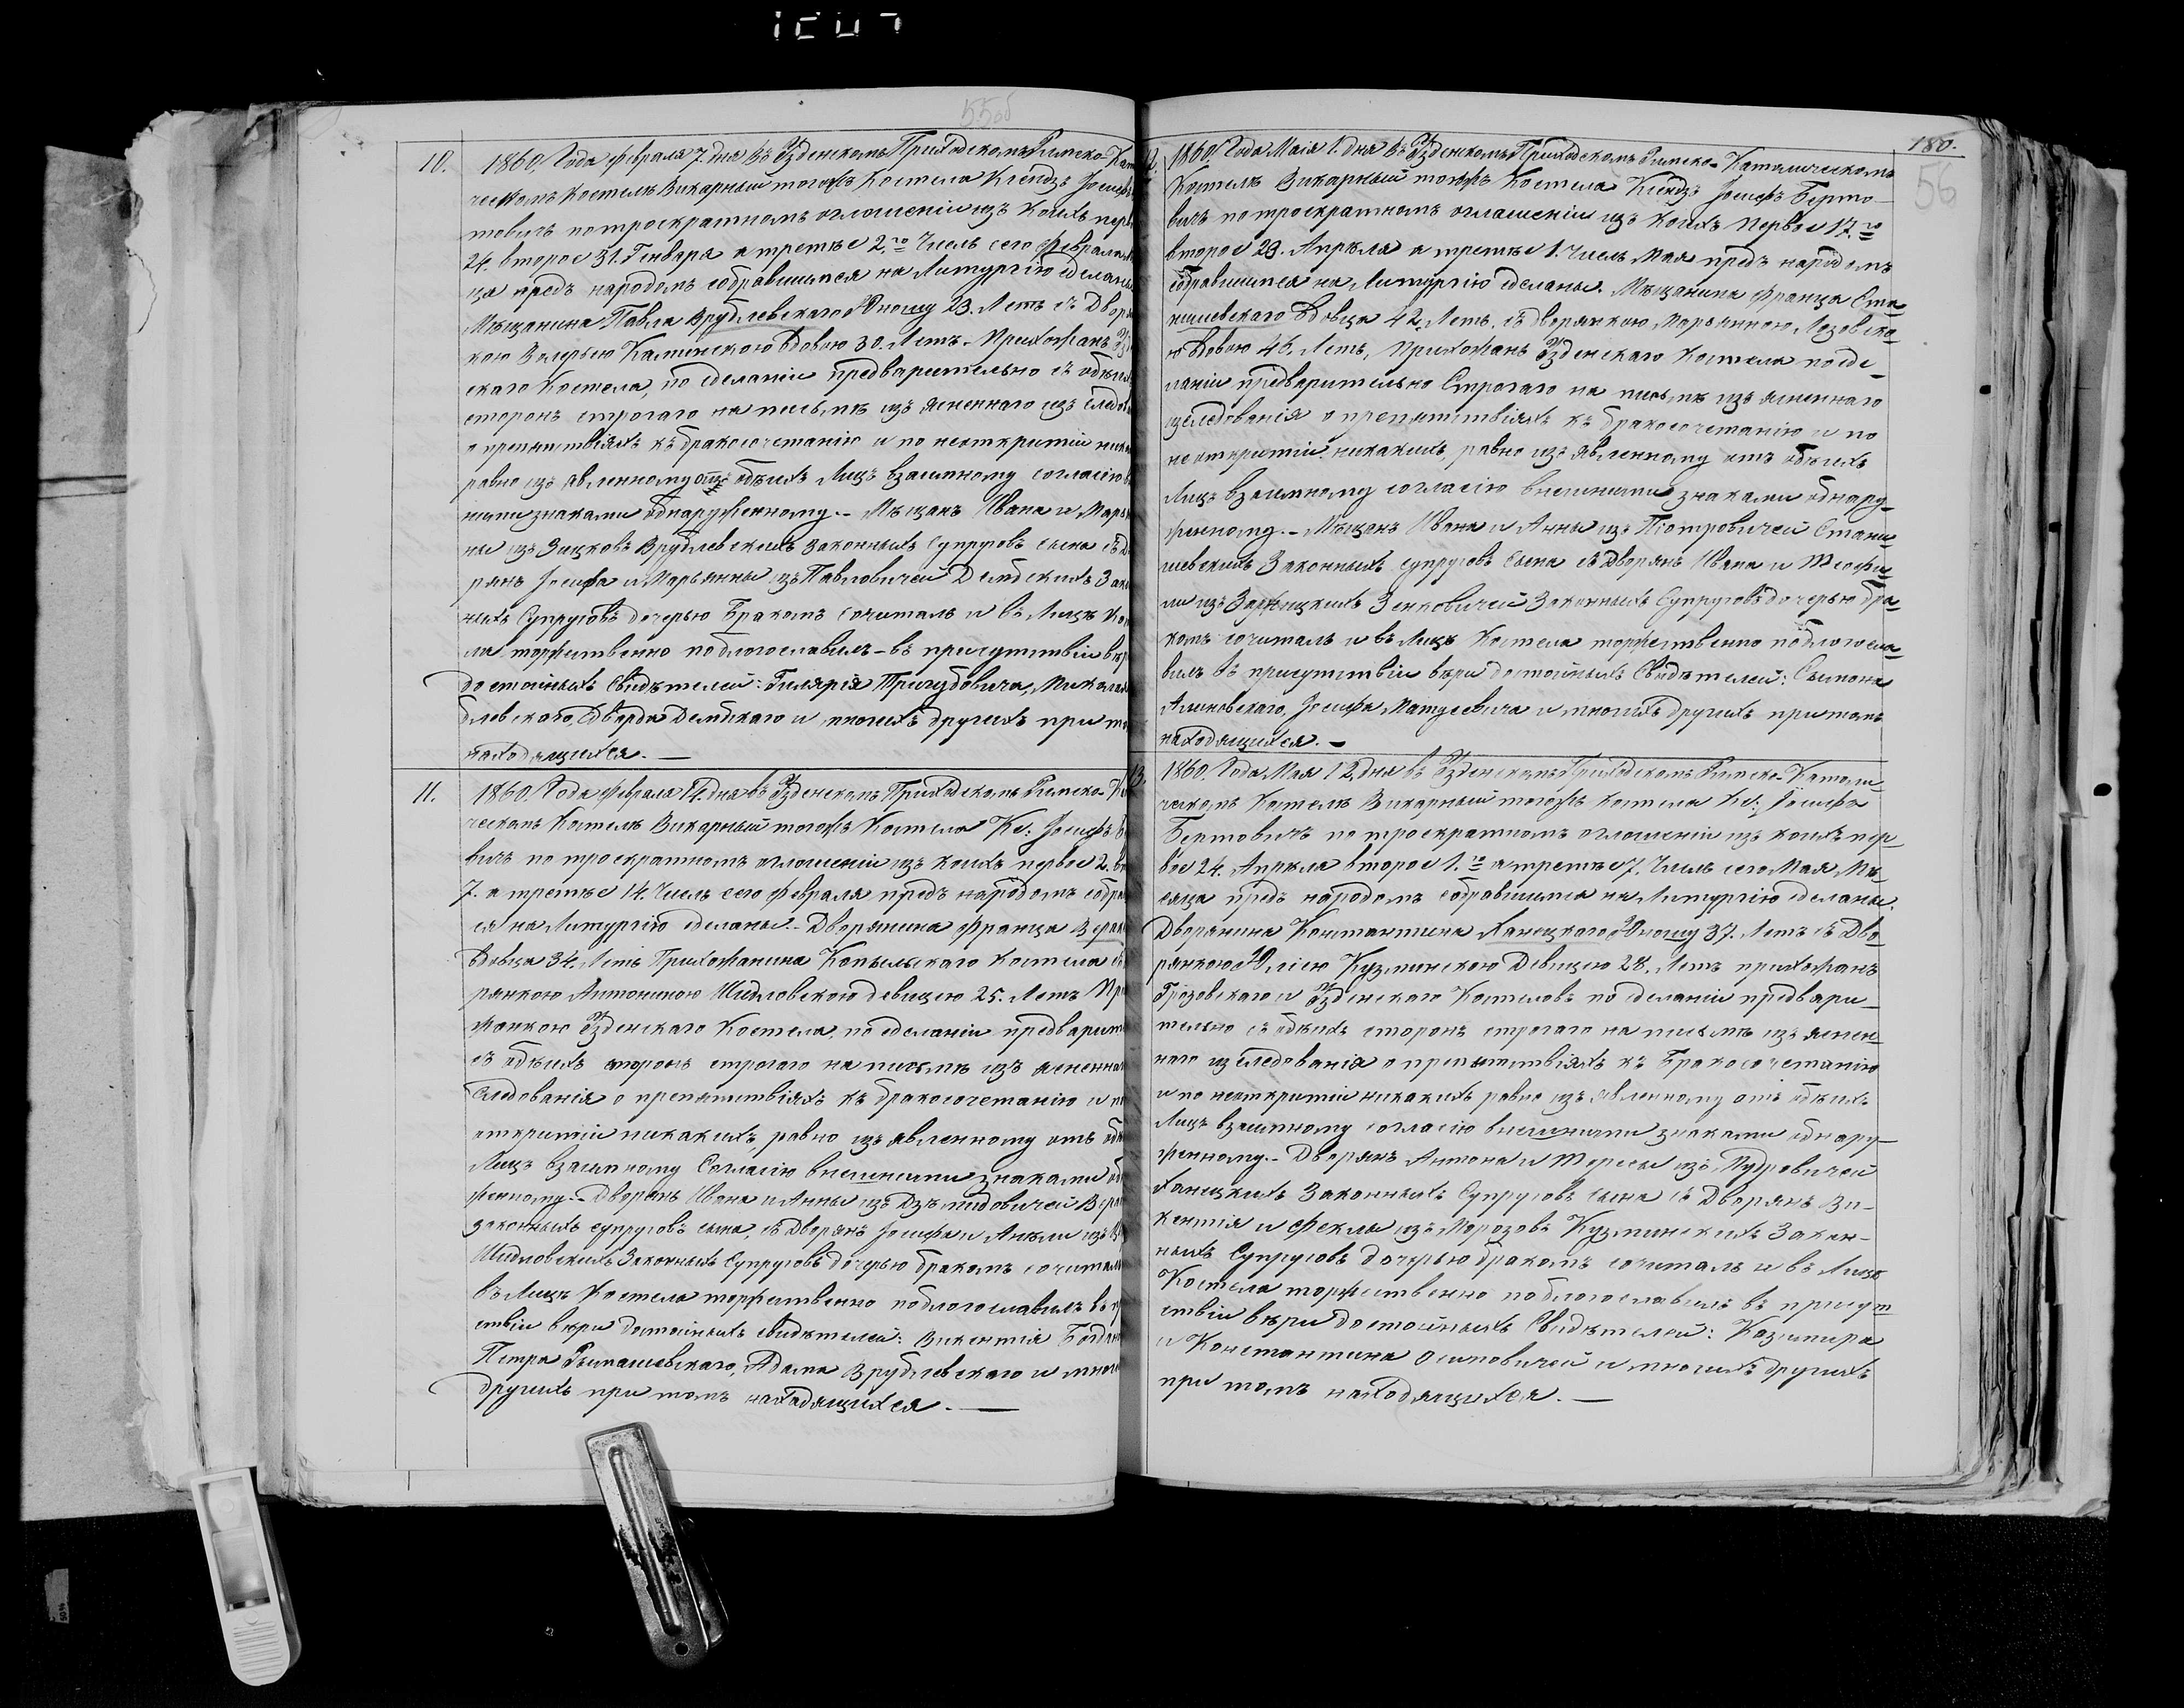 55об
10.
1860. Года Февраля 7. дня въ Узденскомъ Приходскомъ Римско-Кат
ческомъ Костелѣ Викарный тогожъ Костела Ксендзъ Іосифъ
товичъ по троекратномъ оглошеніи изъ коихъ перв
24. второе 31. Генваря а третье 2.го Числъ сего Февраля
ца предъ народомъ собравшимся на Литургію сделаны
Мѣщанина Павла Врублевскаго Юношу 23. Летъ съ Двор
кою Валерьею Калинскою Вдовою 30. Летъ. Прихожанъ Уз
скаго Костела, по сделаніи предварительно съ обѣихъ
сторонъ строгаго на письмѣ изъясненнаго изследов
о препятствіяхъ къ бракосочетанію и по неоткрытіи ника
равно изъявленному отъ обѣихъ Лицъ взаимному согласію в
ными знаками обнаруженному. - Мѣщанъ Ивана и Марья
ны изъ Зацковъ Врублевскихъ законныхъ супруговъ сына съ Д
рянъ Іосифа и Марьянны изъ Павловичей Дембскихъ Зако
ныхъ Супруговъ дочерью Бракомъ сочиталъ и въ Лицѣ Кос
ла торжественно поблогославилъ - въ присутствіи вѣр
достойныхъ Свидѣтелей: Гилярія Трицубовича, Миколая
блевскаго, Эдварда Дембскаго и многихъ другихъ при то
находящихся. —
11.
1860. Года Февраля 14. дня въ Узденскомъ Приходскомъ Римско-К
ческомъ Костелѣ Викарный тогожъ Костела Кс: Іосифъ Б
вичъ по троекратномъ оглошеніи изъ коихъ первое 2. вт
7. а третье 14. Числъ сего Февраля предъ народомъ собра
ся на Литургію сделаны. - Дворянина Франца
Вдовца 34. Летъ Прихожанина Копыльскаго Костела съ
рянкою Антониною Шидловскою девицею 25. Летъ Пр
жанкою Узденскаго Костела, по сделаніи предварит
съ обѣихъ сторонъ строгаго на письмѣ изъясненна
Следованія о препятствіяхъ къ бракосочетанію и п
открытіи никакихъ, равно изъявленному отъ обѣ
Лицъ взаимному Согласію внешними знаками об
женному. - Дворянъ Ивана и Анны изъ
законныхъ супруговъ сына, съ Дворянъ Іосифа и Анѣли изъ
Шидловскихъ Законныхъ Супруговъ дочерью бракомъ сочитал
въ Лицѣ Костела торжественно поблогославилъ въ пр
ствіи вѣри достойныхъ Свидѣтелей: Викентія Богда
Петра Рымашевскаго, Адама Врублевскаго и мног
другихъ при томъ находящихся. —
180.
56
12.
1860. Года Маія 1. дня въ Узденскомъ Приходскомъ Римско-Католическомъ
Костелѣ Викарный тогожъ Костела Ксендзъ Іосифъ Берто-
вичъ по троекратномъ оглашеніи изъ коихъ первое 17.го
второе 23. Апрѣля а третье 1. Числъ Мая предъ народомъ
собравшимся на Литургію сделаны. Мѣщанина Франца Ста-
нишевскаго Вдовца 42. Летъ. съ дворянкою Марьянною Лозовско-
ю Вдовою 46. Летъ, Прихожанъ Узденскаго Костела по сде-
ланіи предварительно Строгаго на письмѣ изъясненнаго
изследованія о препятствіяхъ къ бракосочетанію и по
неоткрытіи никакихъ, равно изъявленному отъ обѣихъ
Лицъ взаимному согласію внешними знаками обнару-
женному. - Мѣщанъ Ивана и Анны изъ Піотровичей Стани-
шевскихъ Законныхъ супруговъ сына съ Дворянъ Ивана и Теофи-
ли изъ Зарецкихъ Зенковичей Законныхъ Супруговъ дочерью бра-
комъ сочиталъ и въ Лицѣ Костела торжественно поблогосла-
вилъ въ присутствіи вѣри достойныхъ Свидѣтелей: Сымона
Алиновскаго, Іосифа Матусевича и многихъ другихъ при томъ
находящихся. —
13.
1860. Года Мая 12. дня въ Узденскомъ Приходскомъ Римско-Католи-
ческомъ Костелѣ Викарный тогожъ Костела Кс: Іосифъ
Бертовичъ по троекратномъ оглошеніи изъ коихъ пер-
вое 24. Апрѣля второе 1.го а третье 7. Числъ сего Мая Мѣ-
сяца предъ народомъ собравшимся на Литургію сделаны.
Дворянина Константина Ханецкаго Юношу 37. Летъ съ Дво-
рянкою Юліею Кузминскою Девицею 28. Летъ прихожанъ
Грозовскаго и Узденскаго Костеловъ по сделаніи предвари-
тельно съ обѣихъ сторонъ строгаго на письмѣ изъяснен-
наго изследованія о препятствіяхъ къ Бракосочетанію
и по неоткрытіи никакихъ равно изъявленному отъ обѣихъ
Лицъ взаимному согласію внешними знаками обнару-
женному. - Дворянъ Антона и Тересы изъ Мудровичей
Ханецкихъ Законныхъ Супруговъ сына съ Дворянъ Ви-
кентія и Феклы изъ Морозовъ Кузминскихъ Закон-
ныхъ Супруговъ дочерью бракомъ сочиталъ и въ Лицѣ
Костела торжественно поблогославилъ въ присут-
ствіи вѣри достойныхъ Свидѣтелей: Казимира
и Константина Осиповичей и многихъ другихъ
при томъ находящихся. —